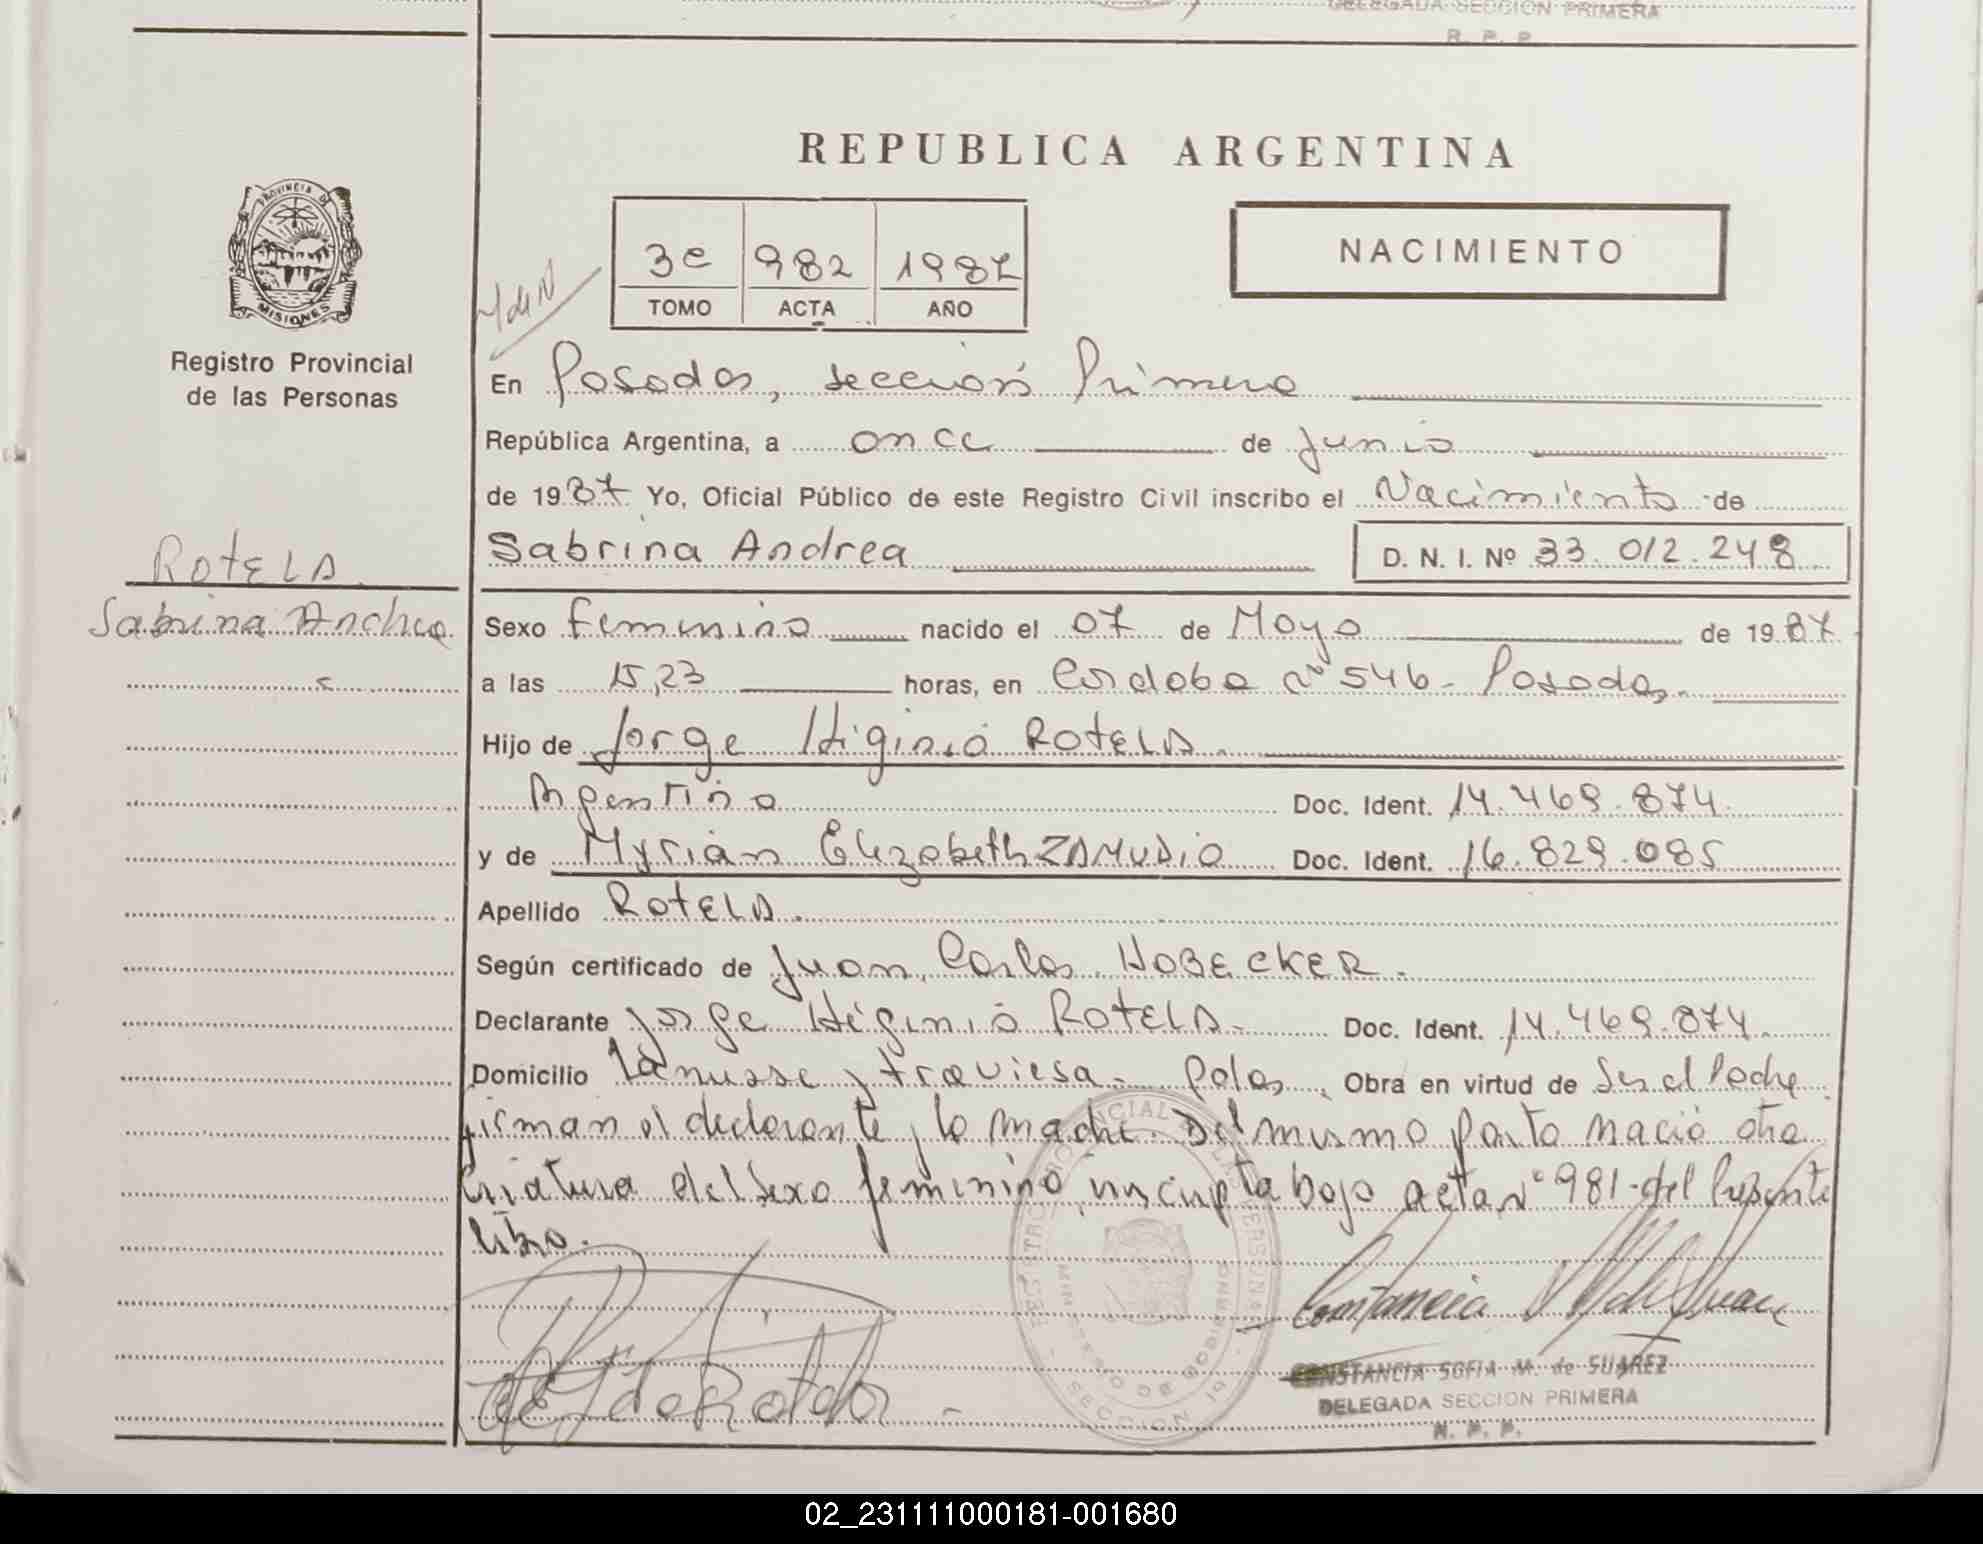 DELEGADA SECCION PRIMERA
R. P. P.
REPUBLICA ARGENTINA
PROVINCIA DE
MISIONES
3e 982 1987
TOMO ACTA AÑO
NACIMIENTO
Registro Provincial
de las Personas
En Posadas, sección Primera
República Argentina, a once de Junio
de 1987 Yo, Oficial Público de este Registro Civil inscribo el Nacimiento de
Sabrina Andrea D. N. I. Nº 33.012.248
ROTELA
Sabrina Andrea
Sexo femenino nacido el 07 de Mayo de 1987
a las 15,23 horas, en Cordoba nº 546 - Posadas
Hijo de Jorge Higinio ROTELA
Argentino Doc. Ident. 14.469.874
y de Myrian Elizabeth ZAMUDIO Doc. Ident. 16.829.085
Apellido ROTELA.
Según certificado de Juan Carlos HOBECKER.
Declarante Jorge Higinio ROTELA Doc. Ident. 14.469.874
Domicilio Lanusse y traviesa - Pdas, Obra en virtud de Ser el Padre
firman el declarante y la madre. Del mismo parto nació otra
criatura del sexo femenino, inscripta bajo acta nº 981 del Presente
libro.
REGISTRO PROVINCIAL DE LAS PERSONAS
MINISTERIO DE GOBIERNO
SECCION 1a
CONSTANCIA SOFIA M. de SUAREZ
DELEGADA SECCION PRIMERA
R. P. P.
02_231111000181-001680